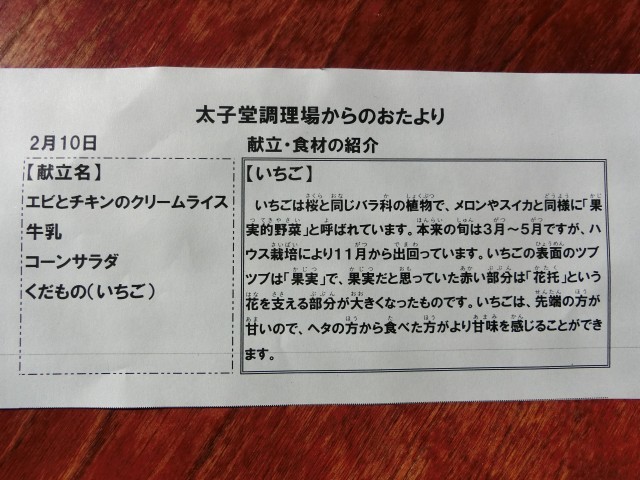 太子堂調理場からのおたより
2月10日
献立・食材の紹介
【献立名】
エビとチキンのクリームライス
牛乳
コーンサラダ
くだもの(いちご)
【いちご】
いちごは桜と同じバラ科の植物で、メロンやスイカと同様に「果
実的野菜」と呼ばれています。本来の旬は3月～5月ですが、ハ
ウス栽培により11月から出回っています。いちごの表面のツブ
ツブは「果実」で、果実だと思っていた赤い部分は「花托」という
花を支える部分が大きくなったものです。いちごは、先端の方が
甘いので、ヘタの方から食べた方がより甘味を感じることができ
ます。